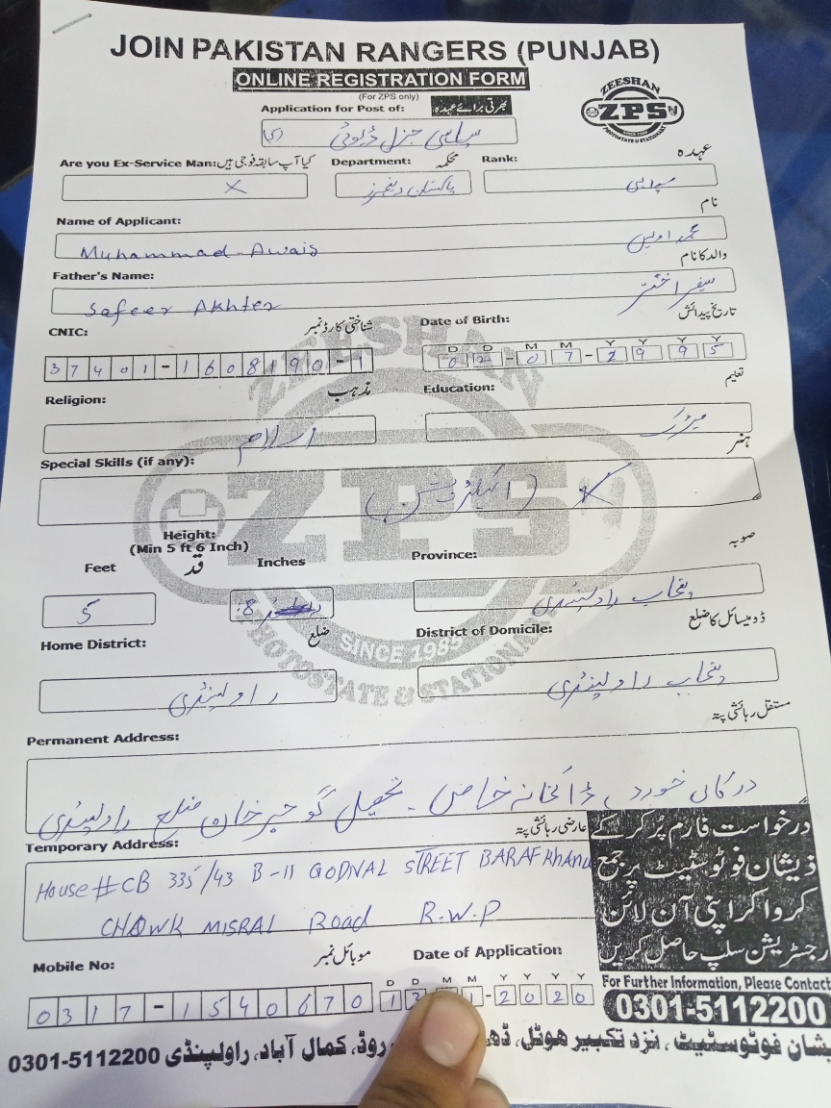 JOIN PAKISTAN RANGERS (PUNJAB)
ONLINE REGISTRATION FORM
(For ZPS only)
Application for Post of: بھرتی برائے عہدہ
ZEESHAN
ZPS
PHOTOSTATE & STATIONARY
سپاہی جنرل ڈیوٹی
Are you Ex-Service Man: کیا آپ سابقہ فوجی ہیں: Department: محکمہ Rank: عہدہ
X پاکستان رینجرز سپاہی
Name of Applicant: نام
Muhammad-Awais محمد اویس
Father's Name: والد کا نام
Safeer Akhter سفیر اختر
CNIC: شناختی کارڈ نمبر Date of Birth: تاریخ پیدائش
D D M M Y Y Y Y
37401-1608190-1 02-07-1995
Religion: مذہب Education: تعلیم
اسلام میٹرک
Special Skills (if any): ہنر
Height:
(Min 5 ft 6 Inch)
Feet قد Inches Province: صوبہ
5 8 پنجاب راولپنڈی
Home District: ضلع District of Domicile: ڈومیسائل کا ضلع
راولپنڈی پنجاب راولپنڈی
ZEESHAN
ZPS
SINCE 1985
PHOTOSTATE & STATIONARY
Permanent Address: مستقل رہائشی پتہ
درکالی خورد، ڈاکخانہ خاص۔ تحصیل گوجرخان ضلع راولپنڈی
Temporary Address: عارضی رہائشی پتہ
House # CB 335/43 B-11 GODNAL STREET BARAF Khana
CHOWK MISRAL Road R.W.P
درخواست فارم پُر کر کے
ذیشان فوٹوسٹیٹ پر جمع
کروا کر اپنی آن لائن
رجسٹریشن سلپ حاصل کریں
Mobile No: موبائل نمبر Date of Application
D D M M Y Y Y Y
0317-1540670 13 1-2020
For Further Information, Please Contact
0301-5112200
ذیشان فوٹوسٹیٹ، نزد تکبیر ہوٹل، روڈ، کمال آباد، راولپنڈی 0301-5112200